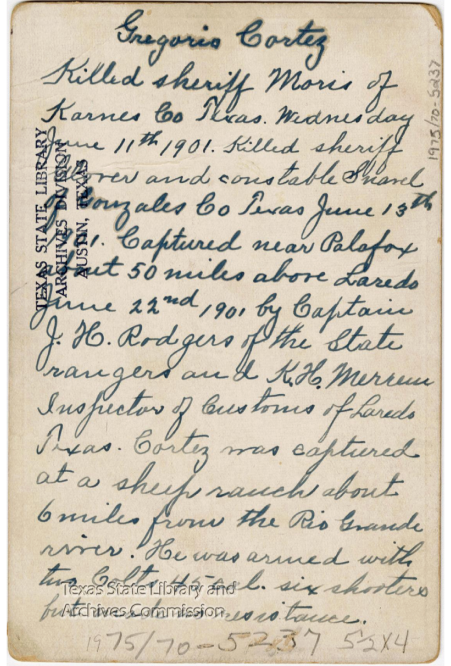 Gregorio Cortez
Killed sheriff Moris of
Karnes Co Texas. Wednesday
June 11th 1901. Killed sheriff
and constable Snavel
of Gonzales Co Texas June 13th
Captured near Palafox
about 50 miles above Laredo
June 22nd 1901 by Captain
J. H. Rodgers of the State
rangers and K.H. Merrem
Inspector of Customs of Laredo
Texas. Cortez was captured
at a sheep ranch about
6 miles from the Rio Grande
river. He was armed with
two Colts 45 cal. six shooters
but resistance.
1975/70-5237 52X4
1975/70-5237
TEXAS STATE LIBRARY
ARCHIVES DIVISION
AUSTIN, TEXAS
Texas State Library and
Archives Commission